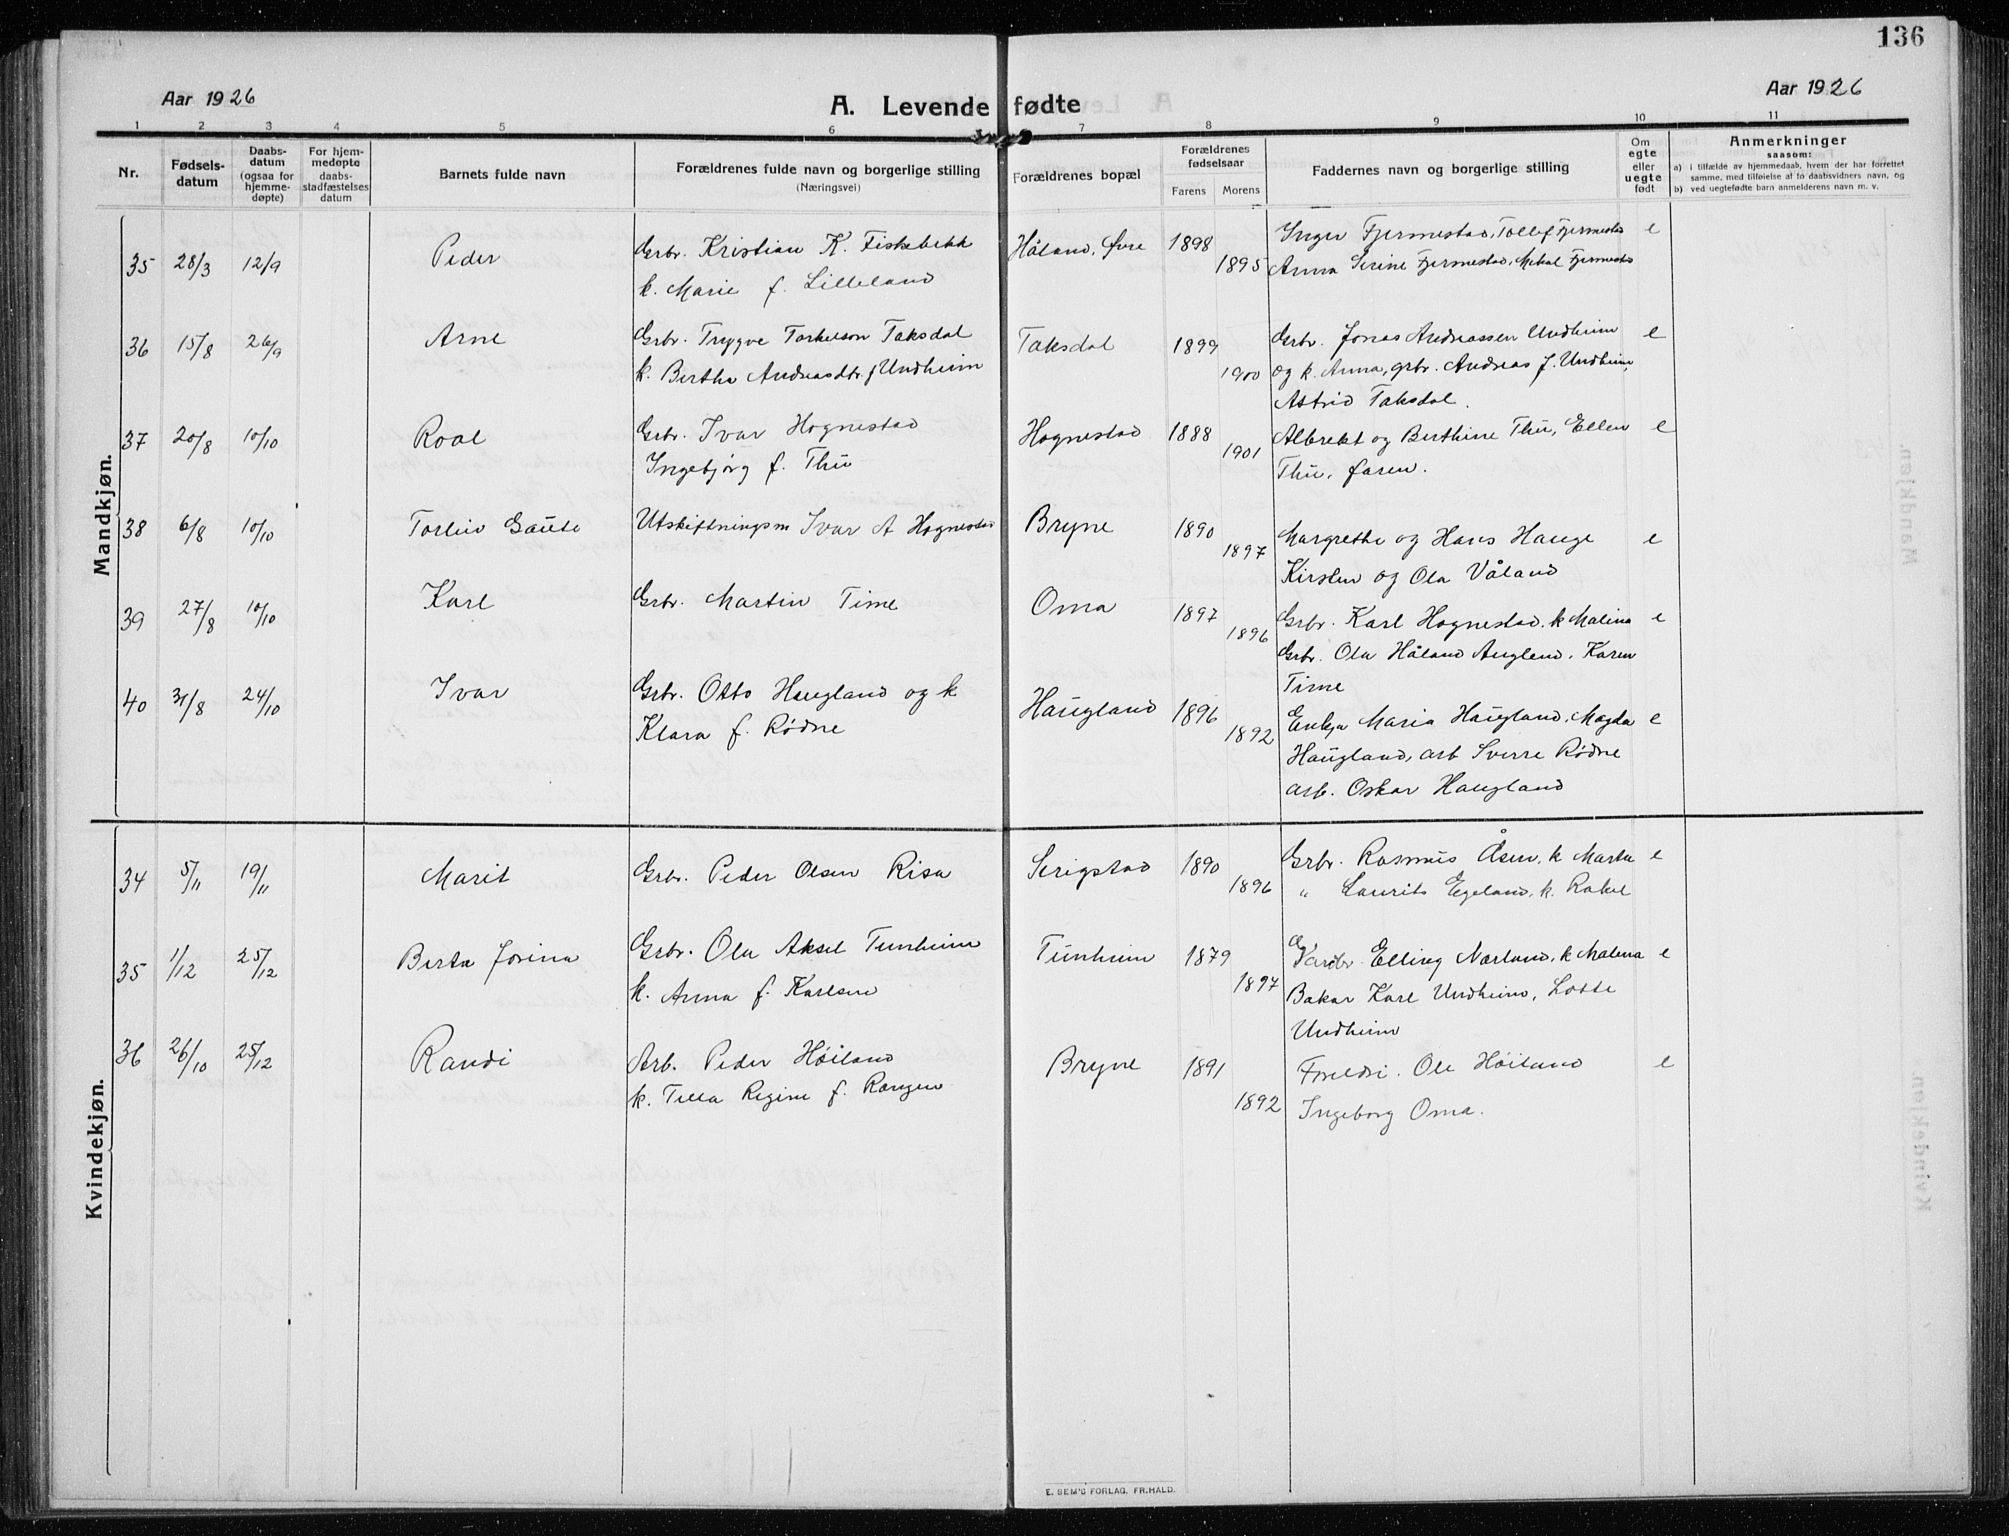 136
Aar 1926
A. Levende fødte
Aar 1926
1 2 3 4 5 6 7 8 9 10 11
Nr.
Fødsels-
datum
Daabs-
datum
(ogsaa for
hjemme-
døpte)
For hjem-
medøpte
daabs-
stadfæstelses
datum
Barnets fulde navn
Forældrenes fulde navn og borgerlige stilling
(Næringsvei)
Forældrenes bopæl
Forældrenes
fødselsaar
Farens Morens
Faddernes navn og borgerlige stilling
Om
egte
eller
uegte
født
Anmerkninger
saasom:
a) i tilfælde av hjemmedaab, hvem der har forrettet
samme, med tilføielse af to daabsvidners navn, og
b) ved uegtefødte barn anmelderens navn m. v.
Mandkjøn.
35 28/3 12/9 Peder Grbr. Kristian K. Fiskebekk Håland, Øvre 1898 Inger Fjermestad, Tollef Fjermestad e
k. Marie f. Lilleland 1895 Anna Serine Fjermestad, Mikal Fjermestad
36 15/8 26/9 Arne Grbr. Trygve Torkelson Taksdal Taksdal 1899 Grbr. Jonas Andreassen Undheim e
k. Bertha Andreasdtr. f Undheim 1900 og k. Anna, grbr. Andreas J. Undheim,
Astrid Taksdal.
37 20/8 10/10 Roal Grbr. Ivar Hognestad Hognestad 1888 Albrekt og Berthine Thu, Ellen e
Ingebjørg f. Thu 1901 Thu, faren.
38 6/8 10/10 Torleiv Gaute Utskiftningsm Ivar A Hognestad Bryne 1890
1897 Margrethe og Hans Hauge e
Kirsten og Ola Våland
39 27/8 10/10 Karl Grbr. Martin Time Oma 1897
1896 Grbr. Karl Hognestad, k Malina e
Grbr. Ola Håland Augland, Karen
Time
40 31/8 24/10 Ivar Grbr. Otto Haugland og k Haugland 1896
Klara f. Rødne 1892 Enkja Maria Haugland, Magda e
Haugland, arb Sverre Rødne
arb. Oskar Haugland
Kvindekjøn.
34 5/11 19/11 Marit Grbr. Peder Olsen Risa Serigstad 1890 Grbr. Rasmus Åsen, k Marta e
1896 " Laurits Egeland, k. Rakel
35 1/12 25/12 Berta Jorina Grbr. Ola Aksel Tunheim Tunheim 1879 Elling Nærland, k Malena e
k. Anna f. Karlsen 1897 Bakar Karl Undheim, Lotte
Undheim
36 26/10 25/12 Randi Arb. Peder Høiland Bryne 1891 Foreldri. Ole Høiland e
k. Tilla Regine f. Rangen 1892 Ingeborg Oma.
E. SEM'S FORLAG, FR.HALD.